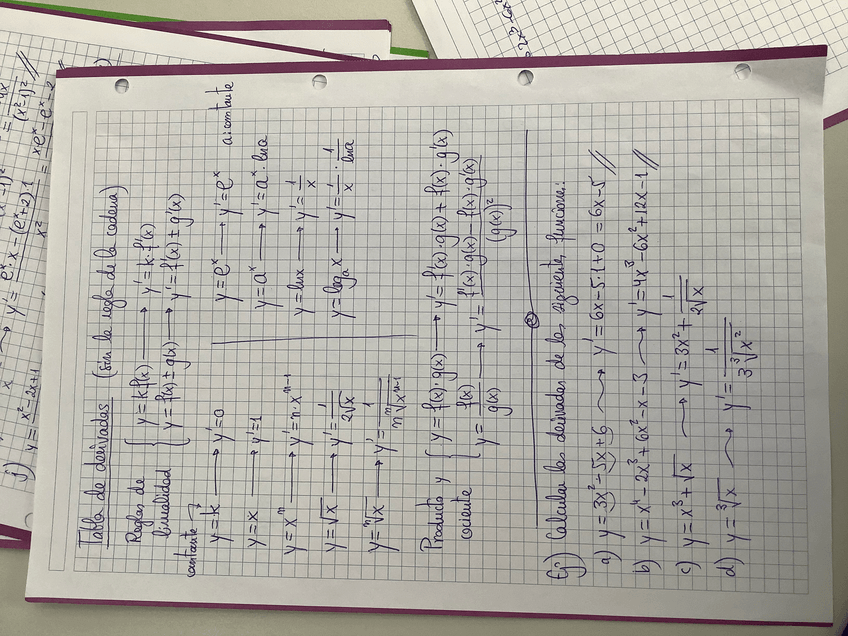 Tabla de derivadas (Sin la regla de la cadena)
Reglas de linealidad { y = k f(x) → y' = k·f'(x)
{ y = f(x) ± g(x) → y' = f'(x) ± g'(x)
constante
y = k → y' = 0
y = x → y' = 1
y = xⁿ → y' = n·xⁿ⁻¹
y = √x → y' = 1/(2√x)
y = ⁿ√x → y' = 1/(n ⁿ√xⁿ⁻¹)
y = eˣ → y' = eˣ
a: constante
y = aˣ → y' = aˣ·lna
y = lnx → y' = 1/x
y = logₐx → y' = 1/x · 1/lna
Producto y cociente { y = f(x)·g(x) → y' = f'(x)·g(x) + f(x)·g'(x)
{ y = f(x)/g(x) → y' = (f'(x)·g(x) − f(x)·g'(x))/(g(x))²
Ej:) Calcular las derivadas de las siguientes funciones:
a) y = 3x² − 5x + 6 → y' = 6x − 5·1 + 0 = 6x − 5 //
b) y = x⁴ − 2x³ + 6x² − x − 3 → y' = 4x³ − 6x² + 12x − 1 //
c) y = x³ + √x → y' = 3x² + 1/(2√x)
d) y = ³√x → y' = 1/(3 ³√x²)
j) y = x² − 2x + 1